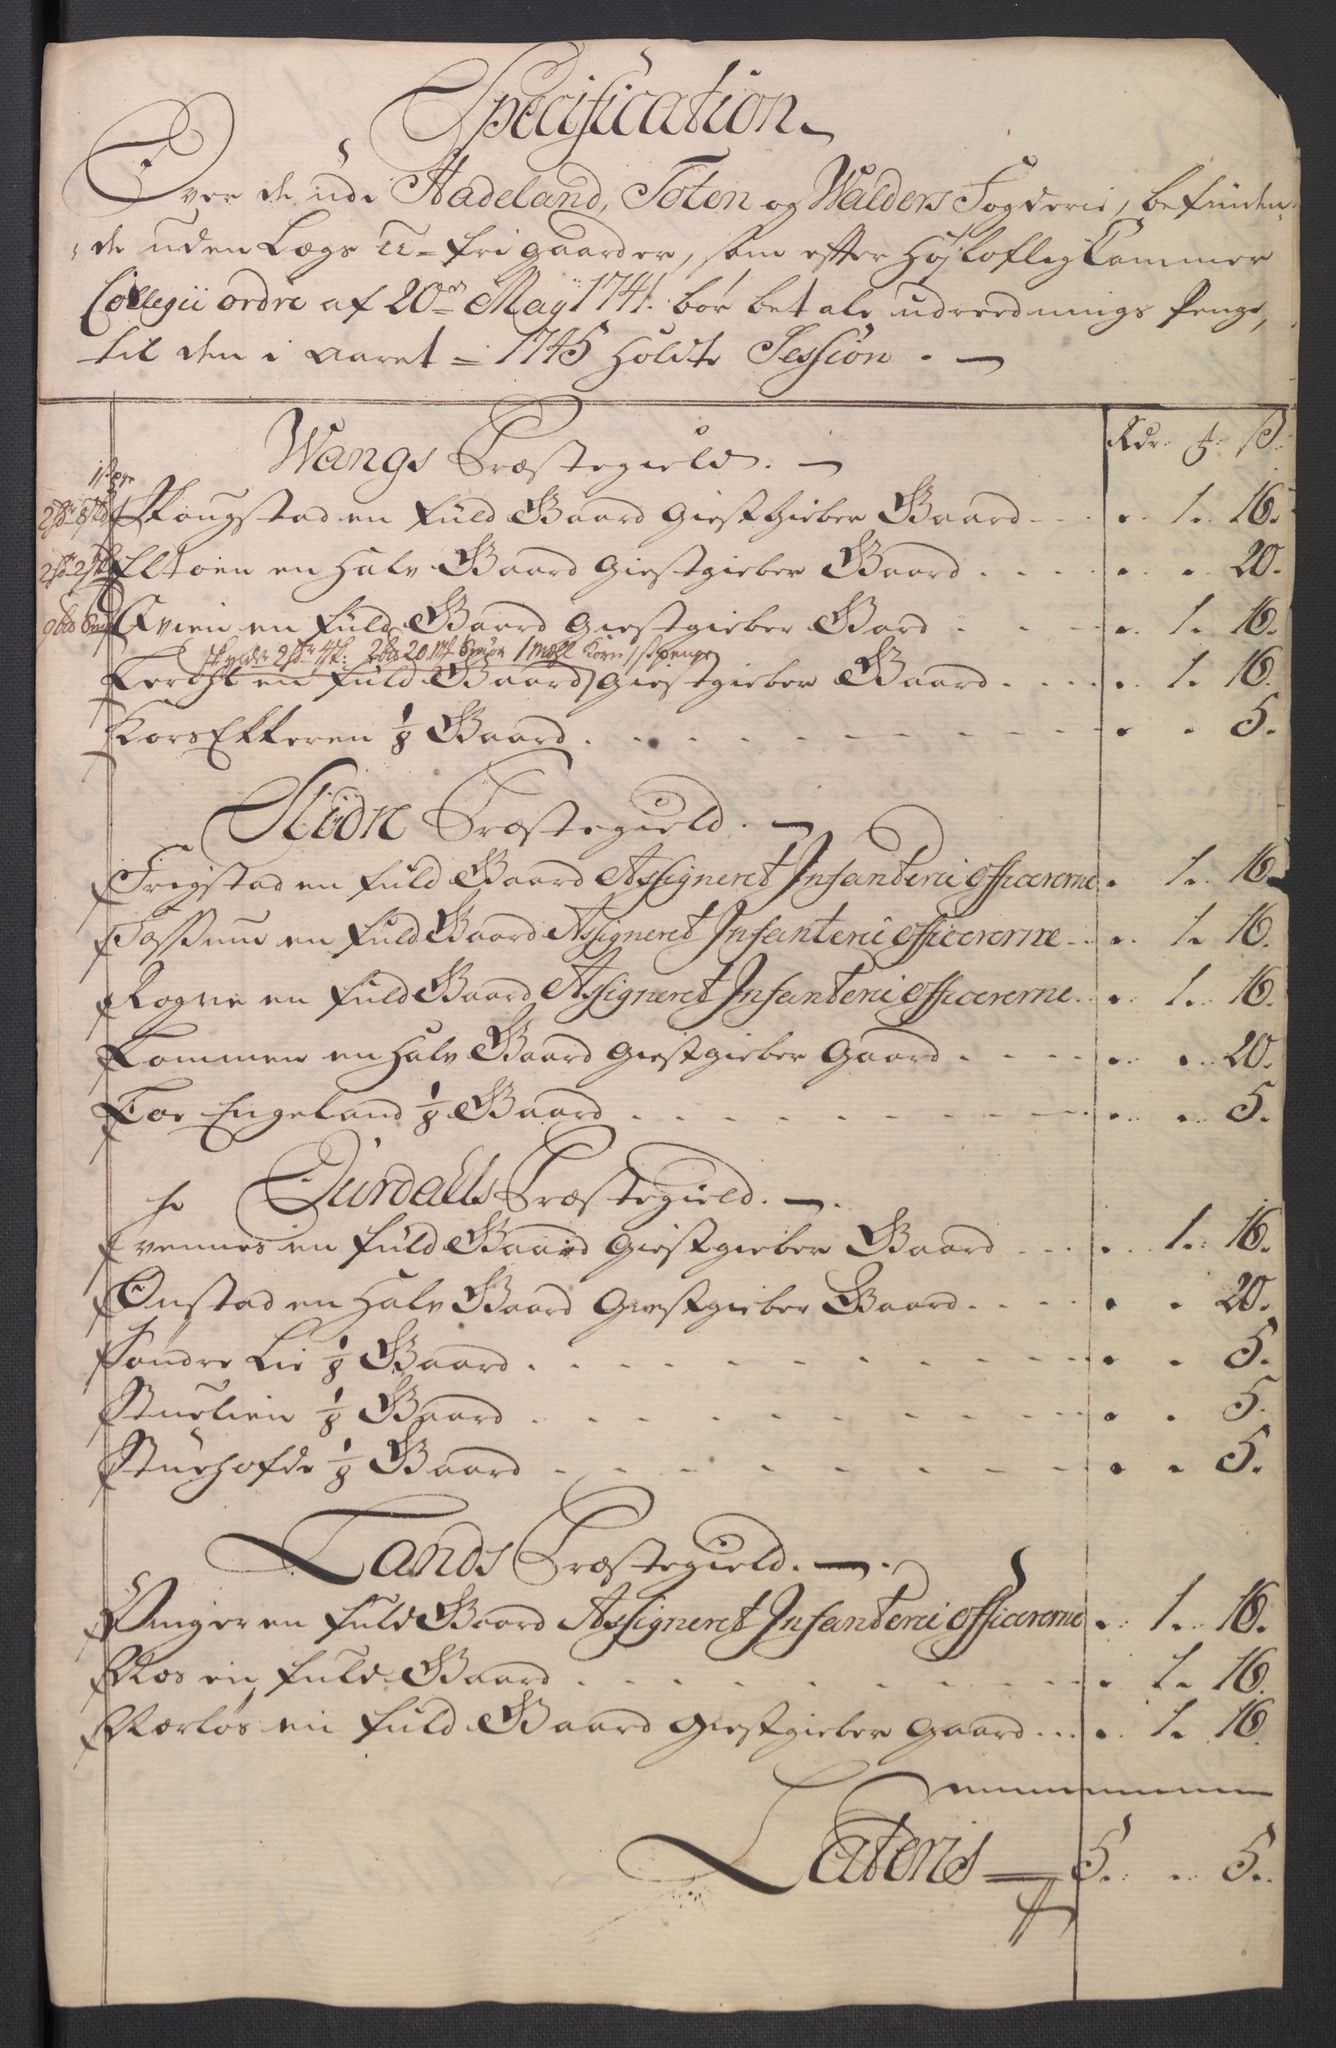 Specification
Over de udi Hadeland, Toten og Walders Fogderie, befinden-
de uden Lægs u-fri gaarder, som efter Høyloflig Cammer
Collegii ordre af 20de May 1741. bør betale udreednings Penge,
til den i aaret 1745 holdte Session.
Wangs Præstegield.
Rdr. ß.
Schougstad en fuld Gaard Giestgieber Gaard . . 1. 16.
Eltoen en halv Gaard Giestgieber Gaard . . . 20.
Qvien en fuld Gaard Giestgieber Gaard . . 1. 16.
skylder 2 4 20 Smør 1 Korn penge
en fuld Gaard Giestgieber Gaard . . 1. 16.
KorsEkkeren 1/8 Gaard . . . 5.
Slidre Præstegield.
Fregstad en fuld Gaard Assigneret Infanterie officererne . 1. 16.
en fuld Gaard Assigneret Infanterie officererne . . 1. 16.
Rogne en fuld Gaard Assigneret Infanterie officererne . . 1. 16.
Tommen en halv Gaard Giestgieber Gaard . . . 20.
Toe Engeland 1/8 Gaard . . . 5.
Ourdahls Præstegield.
Svennes en fuld Gaard Giestgieber Gaard . . 1. 16.
Onstad en halv Gaard Giestgieber Gaard . . . 20.
Søndre Lie 1/8 Gaard . . . 5.
Stuelien 1/8 Gaard . . . 5.
Stuehofde 1/8 Gaard . . . 5.
Lands Præstegield.
en fuld Gaard Assigneret Infanterie officererne . 1. 16.
en fuld Gaard . . 1. 16.
en fuld Gaard Giestgieber Gaard . . 1. 16.
Lateris 5. . 5.